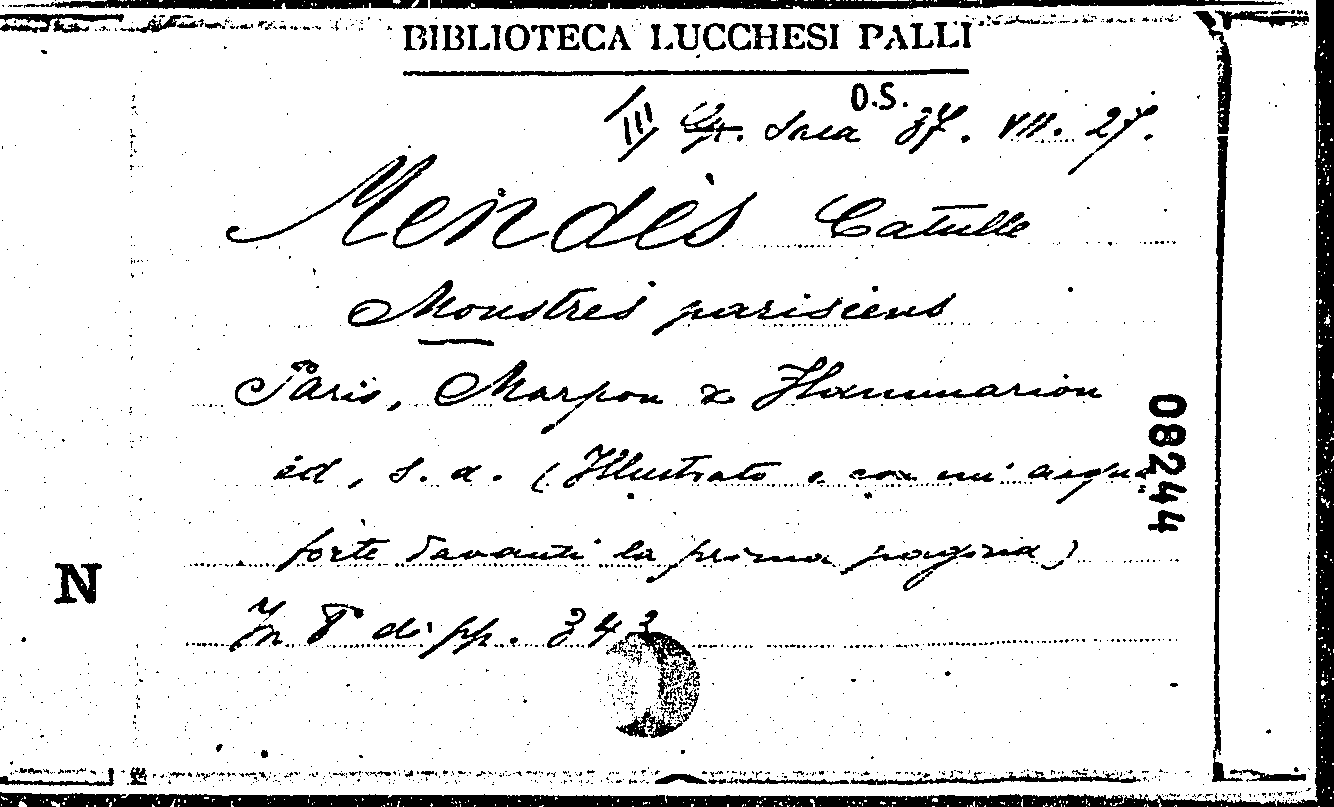 BIBLIOTECA LUCCHESI PALLI
O.S.
III Gr. Sala 37. VII. 27.
Mendès Catulle
Monstres parisiens
Paris, Marpon & Flammarion
éd, s. d. (Illustrato e con un' acqua
forte davanti la prima pagina)
In 8° di pp. 343
08244
N